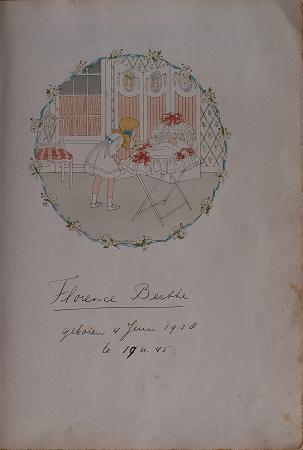 Florence Berthe
geboren 4 Juni 1938
te 19 u. 45.